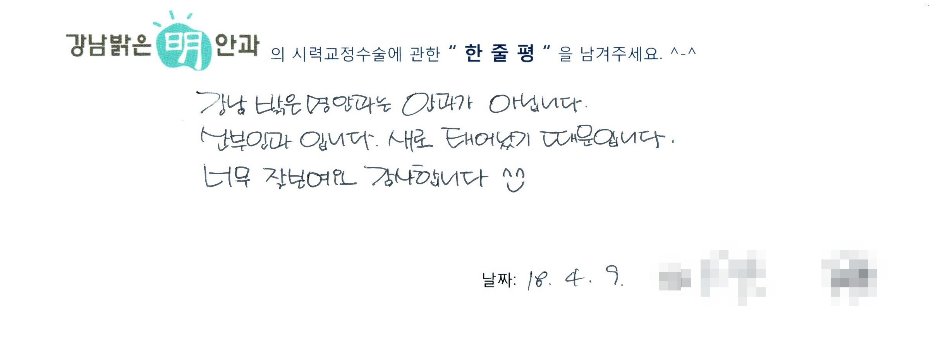 강남밝은 明 안과 의 시력교정수술에 관한 “ 한 줄 평 ” 을 남겨주세요. ^-^
강남 밝은 명안과는 안과가 아닙니다.
산부인과 입니다. 새로 태어났기 때문입니다.
너무 잘보여요 감사합니다
날짜: 18. 4. 9.